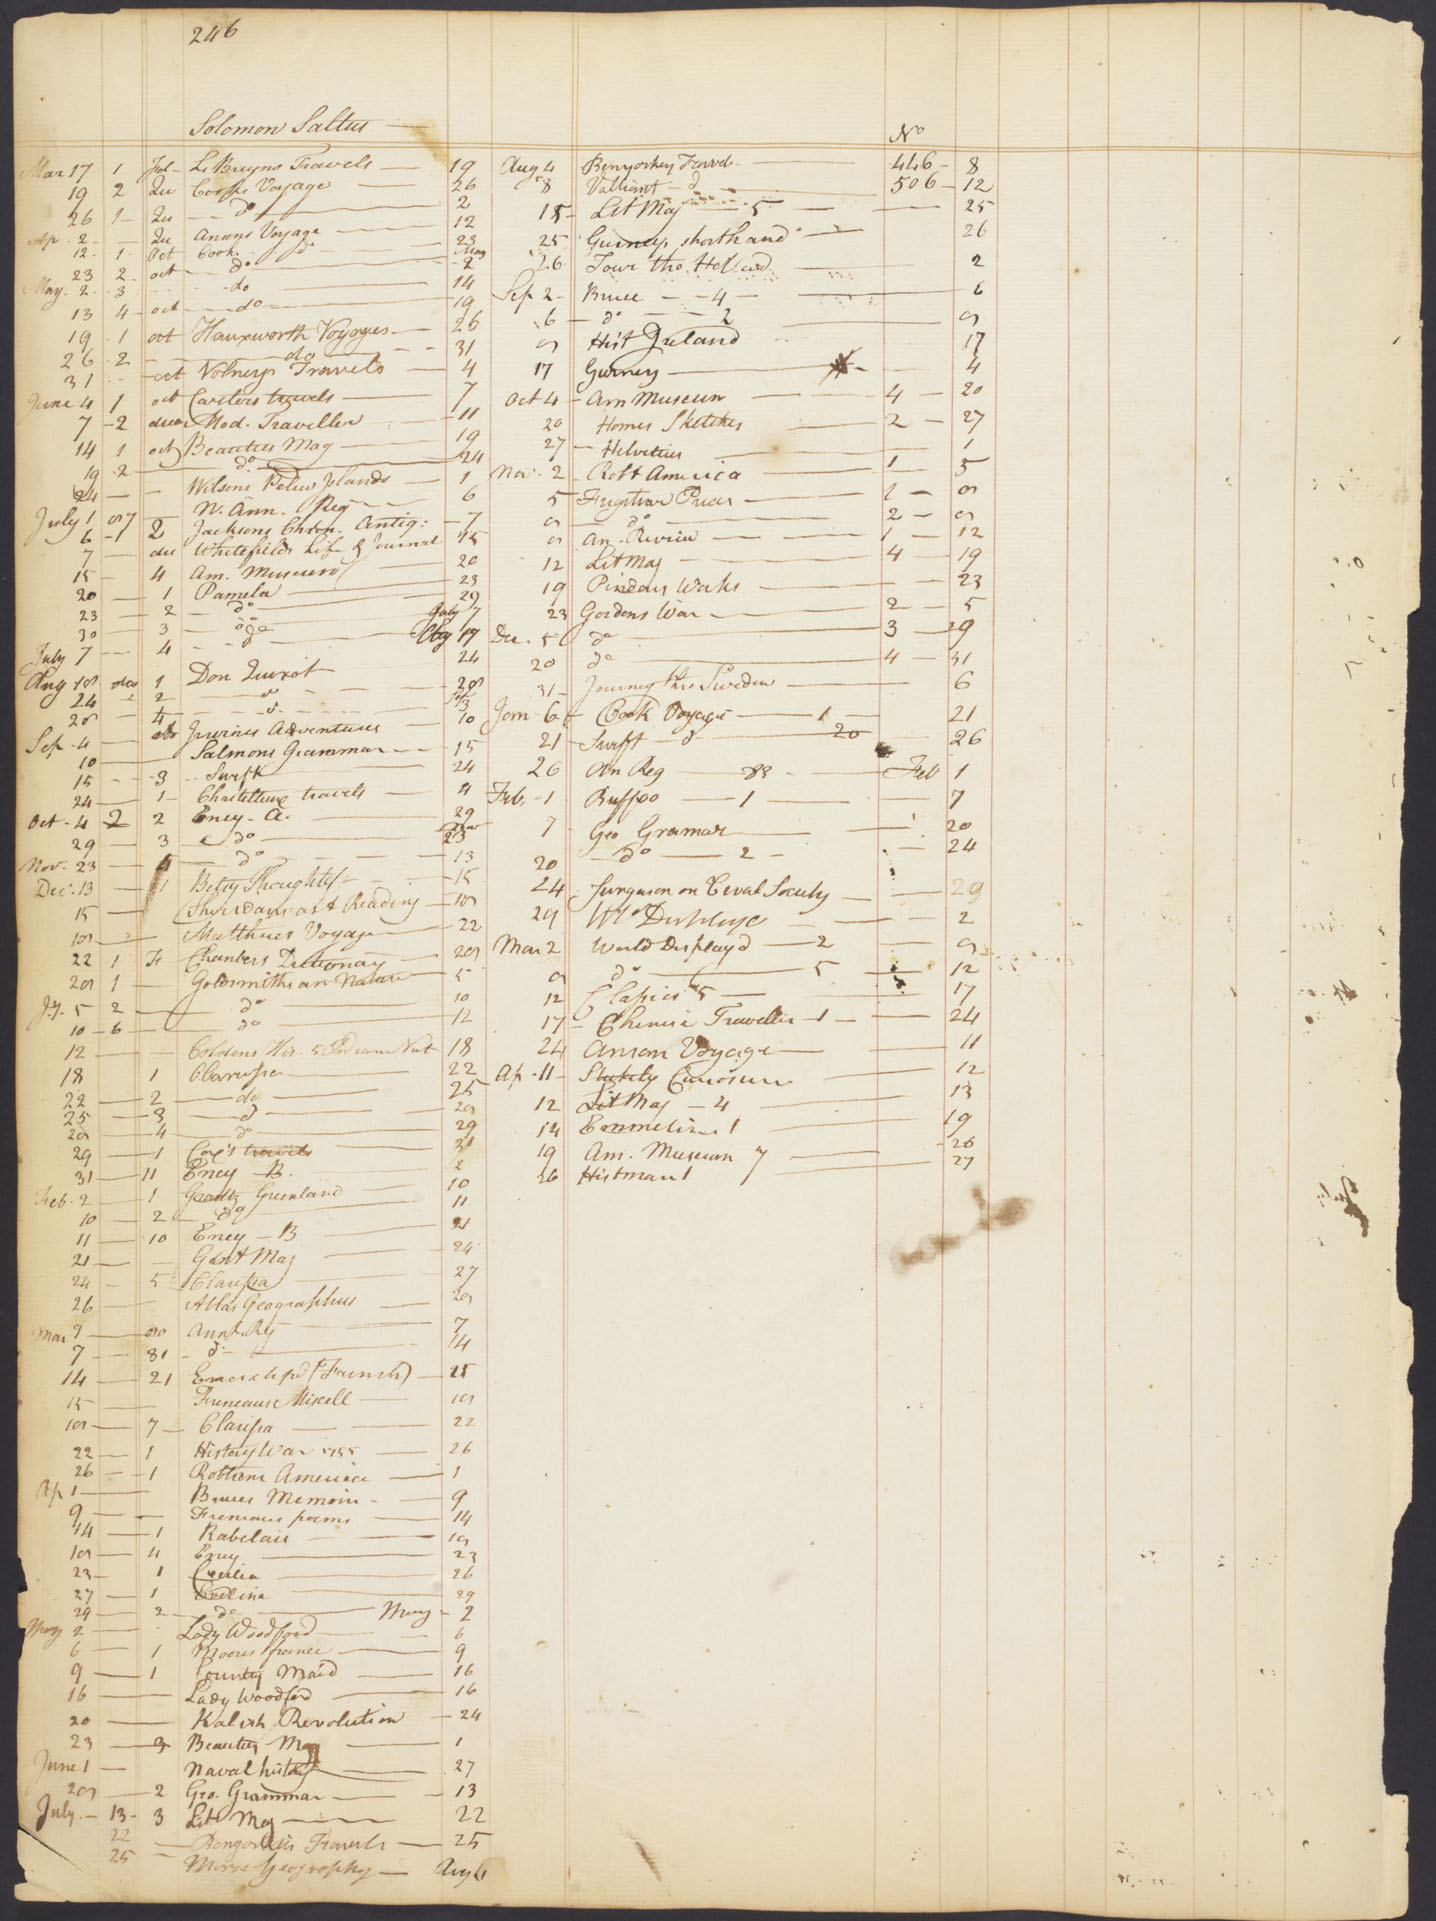 246
Solomon Saltus
No
Mar 17 1 fol - Le Bruyns Travels 19
19 2 Qu Cooks Voyage 26
26 1 Qu do 2
Ap. 2 Qu Ansons Voyage 12
12 1 Oct Cook do 23
23 2 oct do May 2
May 2 3 do 14
13 4 oct do 19
19 1 oct Hauxworth Voyages 26
26 2 do 31
31 oct Volneys Travels 4
June 4 1 oct Carvers travels 7
7 2 duo Mod. Traveller 11
14 1 oct Beauties Mag 19
19 2 do 24
24 Wilsons Pelew Islands 1
July 1 97 N. Ann. Reg 6
6 1 2 Jacksons Chron. Antiq: 7
7 duo Whitefields Life & Journal 15
15 4 Am. Museum 20
20 1 Pamela 23
23 2 do 29
30 3 do July 7
July 7 4 do Aug 19
Aug 18 duo 1 Don Quixot 24
24 2 do 28
28 4 do Sep 3
Sep. 4 Irvines Adventures 10
10 Salmons Grammar 15
15 3 Swift 24
24 1 Chastellux travels 4
Oct. 4 2 2 Ency. A. 29
29 3 do Nov 23
Nov. 23 4 do 13
Dec. 13 1 Betsy Thoughtless 15
15 Sheridans art Reading 18
18 Matthews Voyage 22
22 1 F Chambers Dictionary 28
28 1 Goldsmiths an Nature 5
Jy. 5 2 do 10
10 6 do 12
12 Coldens His. 5 Indian Nat 18
18 1 Clarissa 22
22 2 do 25
25 3 do 28
28 4 do 29
29 1 Cox's travels 31
31 11 Ency B. 2
Feb. 2 1 Crantz Greenland 10
10 2 do 11
11 10 Ency - B 21
21 Gent Mag 24
24 5 Clarissa 27
26 Atlas Geographus 28
Mar 1 80 Annl. Reg 7
7 81 do 14
14 21 Encyclopd (French) 15
15 Freneaus Miscell 18
18 7 Clarissa 22
22 1 History War 1755 26
26 1 Robtsons America 1
Ap 1 Bruces Memoirs 9
9 Freneaus poems 14
14 1 Rabelais 18
18 4 Ency 23
23 1 Cecilia 26
27 1 Evelina 29
29 2 do May 2
May 2 Lady Woodford 6
6 1 Moores france 9
9 1 Country Maid 16
16 Lady Woodford 16
20 Kalish Revolution 24
23 3 Beauties Mag 1
June 1 Naval history 27
28 2 Geo. Grammar 13
July 13 3 Lit Mag 22
22 Benyowskis Travels 25
25 Morse Geography Aug 4
Aug 4 Benyoskey Travels 446 8
8 Valliant do 506 12
15 Lit Mag 5 25
25 Gurneys shorthand 26
26 Tour tho Holland 2
Sep 2 Bruce 4 6
6 do 2 9
9 Hist Ireland 17
17 Gurney 4
Oct 4 Am Museum 4 20
20 Homes Sketches 2 27
27 Helvetius 1
Nov. 2 Robt America 1 5
5 Fugitive Pieces 1 9
9 do 2 9
9 An. Review 1 12
12 Lit Mag 4 19
19 Pindars Works 23
23 Gordons War 2 5
Dec. 5 do 3 29
20 do 4 31
31 Journey thro Sweden 6
Jan 6 Cook Voyage 1 21
21 Swift do 20 26
26 An Reg 83 Feb 1
Feb. 1 Buffoo 1 7
7 Geo Gramar 1 20
20 do 2 24
24 Furguson on Cival Society 29
29 Wld Displayd 2
Mar 2 World Displayd 2 9
9 do 5 12
12 Classics 5 17
17 Chinese Traveller 1 24
24 Anson Voyage 11
Ap. 11 Stukely Curiosum 12
12 Lit Mag 4 13
14 Emmeline 1 19
19 Am. Museum 7 26
26 Histman 1 27